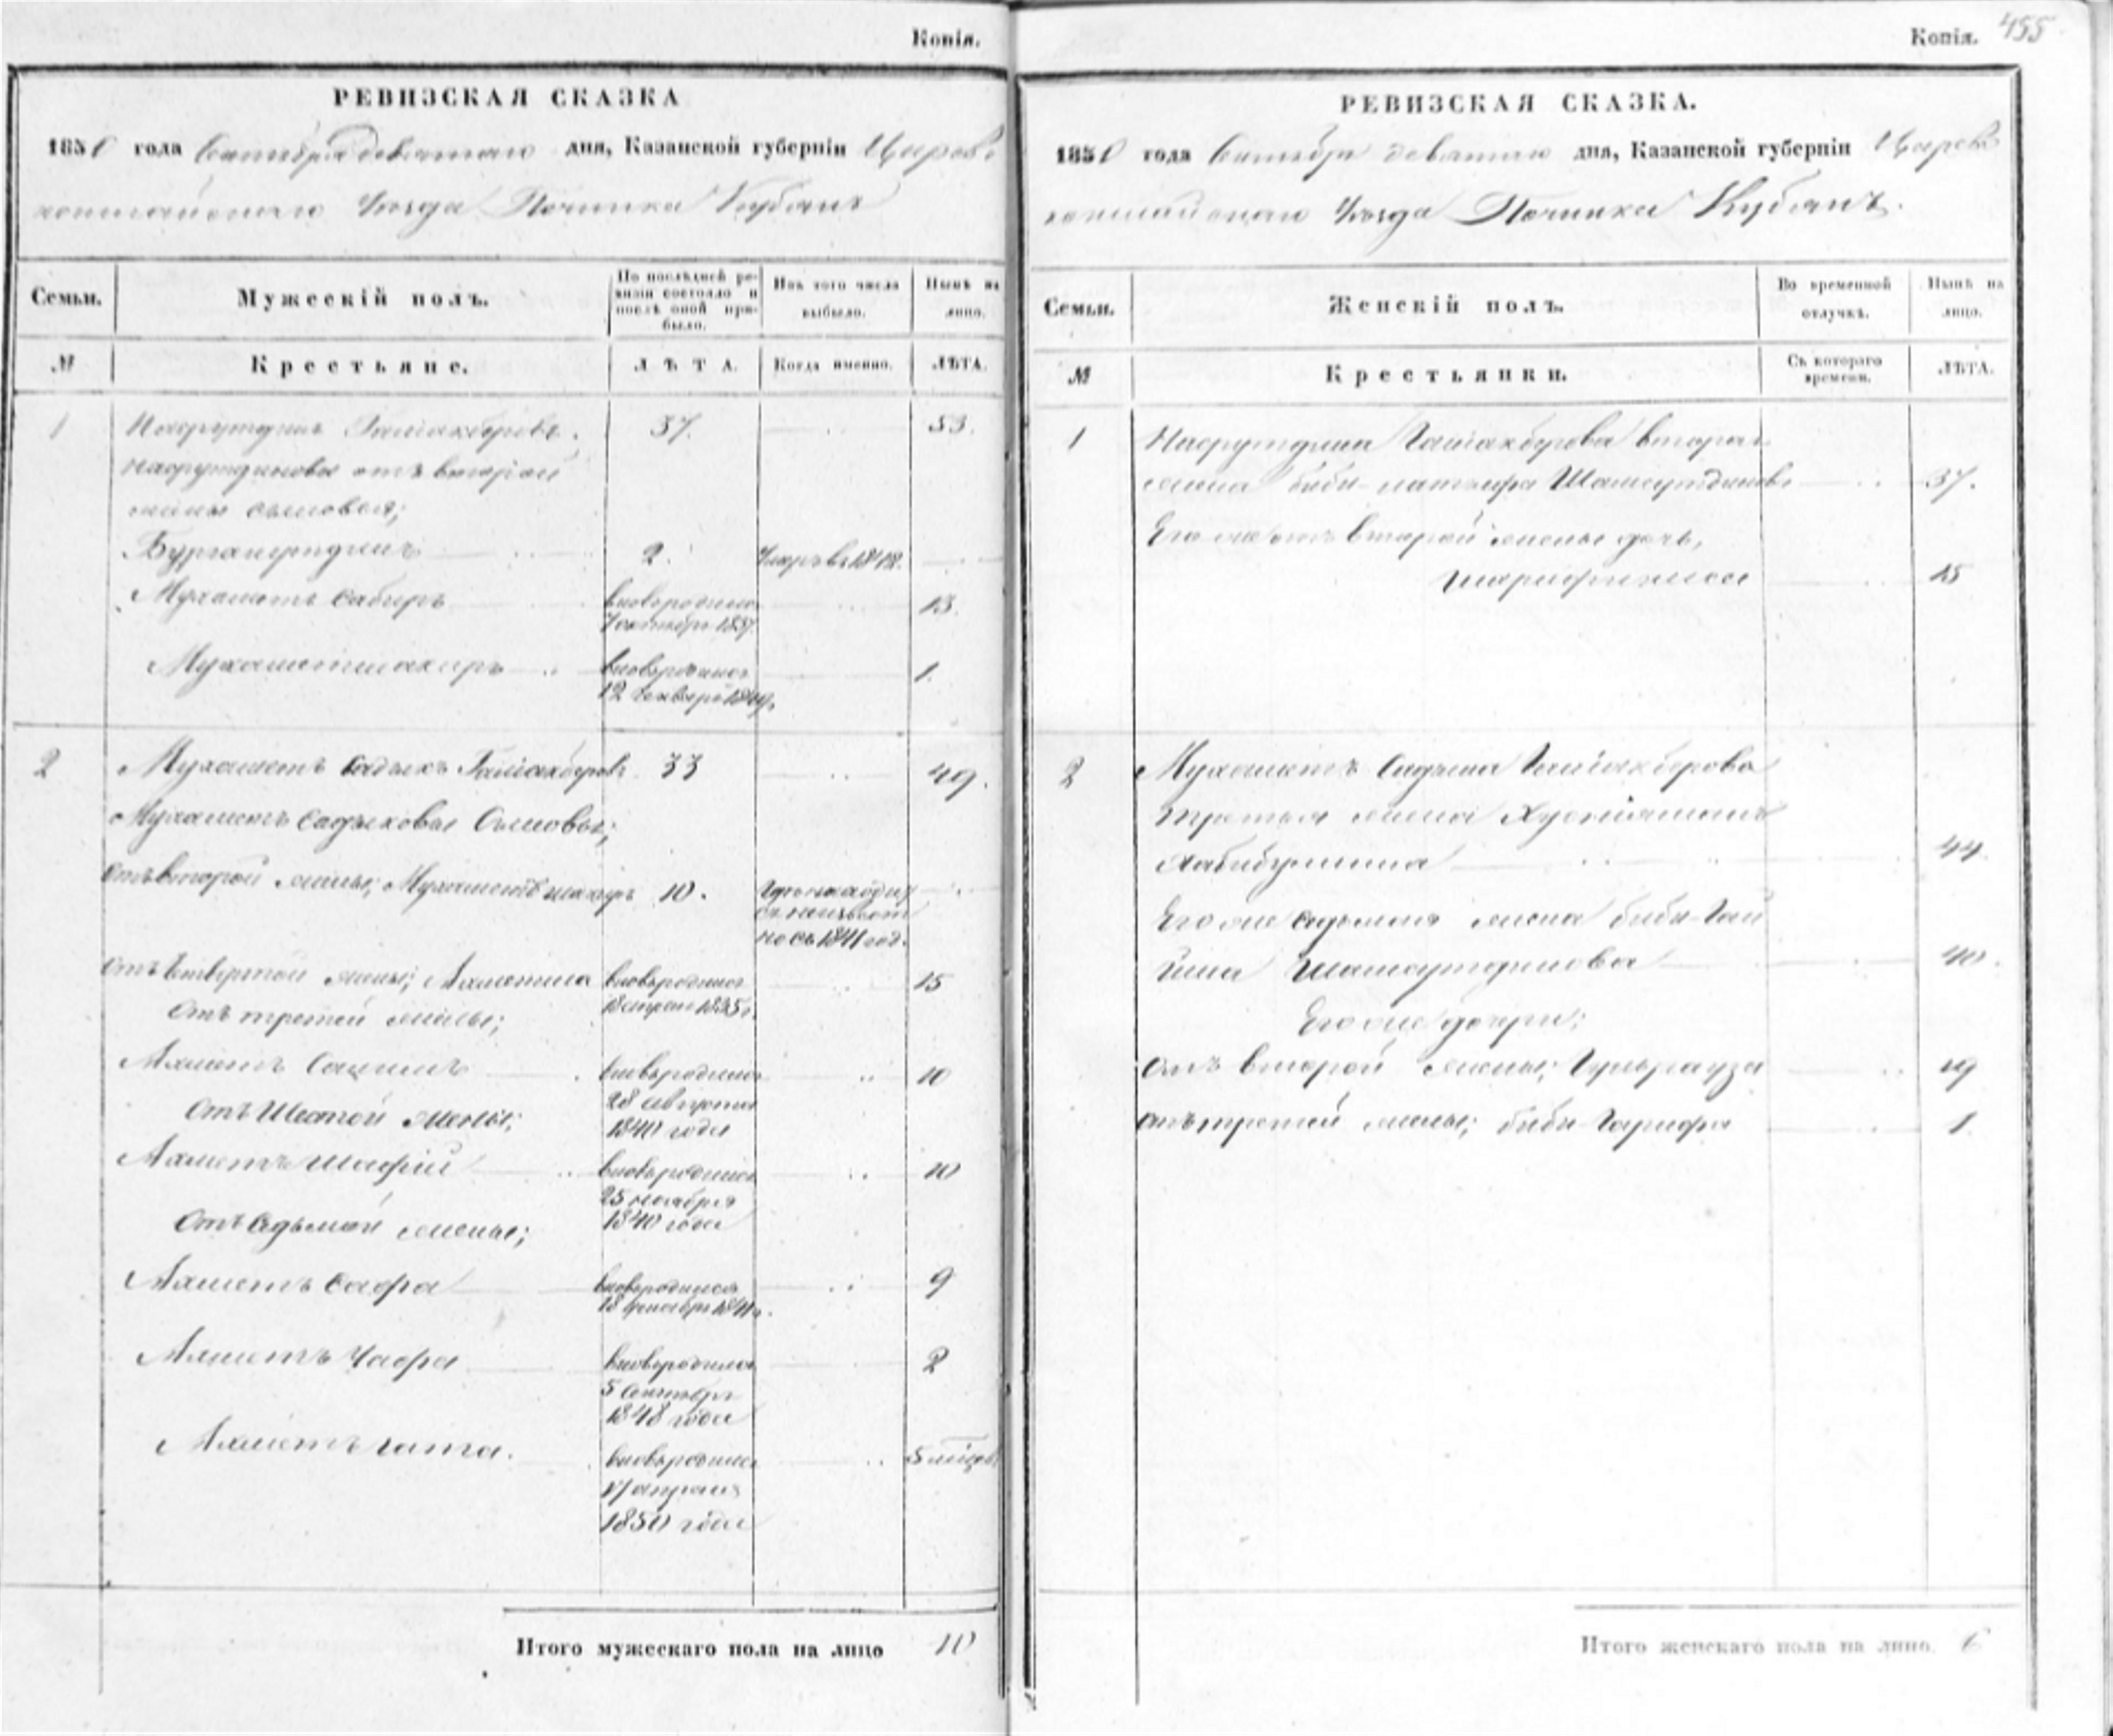 Копія.
РЕВИЗСКАЯ СКАЗКА
1850 года Сентября девятаго дня, Казанской губерніи Царево
кокшайскаго Уѣзда Починка Кубанъ
Семьи. Мужескій полъ. По послѣдней ре-
визіи состояло и
послѣ оной при-
было. Изъ того числа
выбыло. Нынѣ на
лицо.
№ Крестьяне. ЛѢТА. Когда именно. ЛѢТА.
1 Насрутдинъ 37. 53.
Насрутдиновы отъ второй
жены сыновья;
Бурганутдинъ 2.
Мухаметъ Сабиръ вновьродился 13.
7 октября 1837
Мухаметшакиръ вновьродился 1.
12 Генваря 1849.
2 Мухаметъ Садыкъ 33 49.
Мухаметъ Садыковы Сыновья;
Отъ второй жены; Мухаметъ 10. Гдѣ находит
ся неизвест
но съ 1841 год.
Отъ Четвертой жены; вновьродился 15
1835
Отъ третей жены;
Ахметъ вновьродился 10
28 августа
1840 года
Отъ Шестой жены;
Ахметъ Шафій вновьродился 10
25 ноября
1840 года
Отъ Седьмой жены;
Ахметъ Сафа вновьродился 9
18 1841
Ахметъ вновьродился 2
5 Сентября
1848 года
Ахметъ Гата. вновьродился 5 мѣсяц
17 апреля
1850 года
Итого мужескаго пола на лицо 10
Копія. 455
РЕВИЗСКАЯ СКАЗКА.
1850 года Сентября девятаго дня, Казанской губерніи Царево
кокшайскаго Уѣзда Починка Кубанъ.
Семьи. Женскій полъ. Во временной
отлучкѣ. Нынѣ на
лицо.
№ Крестьянки. Съ котораго
времени. ЛѢТА.
1 Насрутдина вторая
жена биби 37.
Его же отъ второй жены дочь,
15
2 Мухаметъ Садыка
третья жена
Хабибуллина 44.
Его же Седьмая жена биби
Шамсутдинова 40.
Его же дочери;
Отъ второй жены; 19
Отъ третей жены; биби Гарифа 1
Итого женскаго пола на лицо. 6